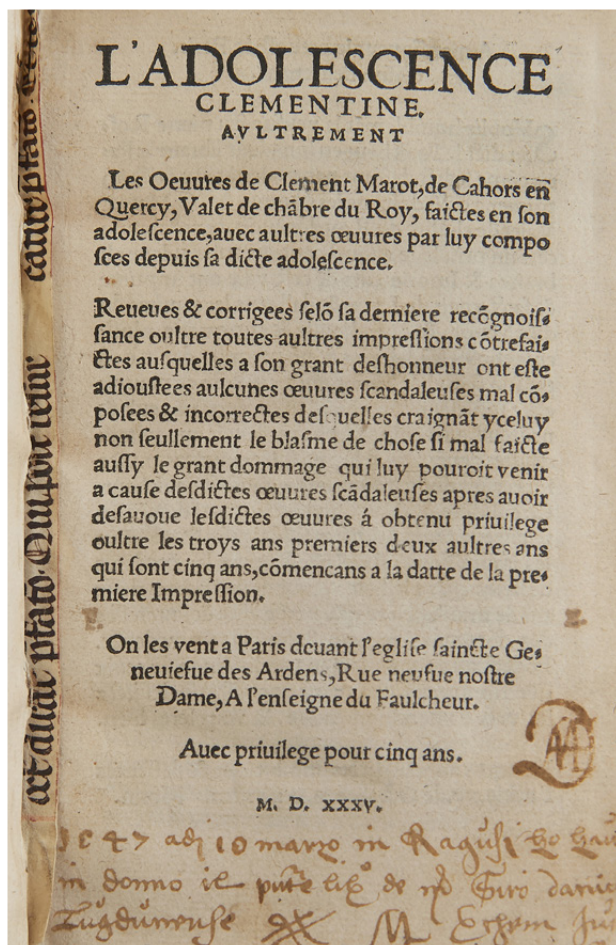 L'ADOLESCENCE
CLEMENTINE.
AVLTREMENT
Les Oeuures de Clement Marot, de Cahors en
Quercy, Valet de chãbre du Roy, faictes en son
adolescence, auec aultres œuures par luy compo
sees depuis sa dicte adolescence.
Reueues & corrigees selõ sa derniere recõgnois⸗
sance oultre toutes aultres impressions cõtrefai⸗
ctes ausquelles a son grant deshonneur ont este
adioustees aulcunes œuures scandaleuses mal cõ⸗
posees & incorrectes desquelles craignãt yceluy
non seullement le blasme de chose si mal faicte
aussy le grant dommage qui luy pouroit venir
a cause desdictes œuures scãdaleuses apres auoir
desauoue lesdictes œuures á obtenu priuilege
oultre les troys ans premiers deux aultres ans
qui sont cinq ans, cõmencans a la datte de la pre⸗
miere Impression.
On les vent a Paris deuant l'eglise saincte Ge⸗
neuiefue des Ardens, Rue neufue nostre
Dame, A l'enseigne du Faulcheur.
Auec priuilege pour cinq ans.
M. D. XXXV.
1547 adj 10 marzo in Ragusi ho
in donno il de